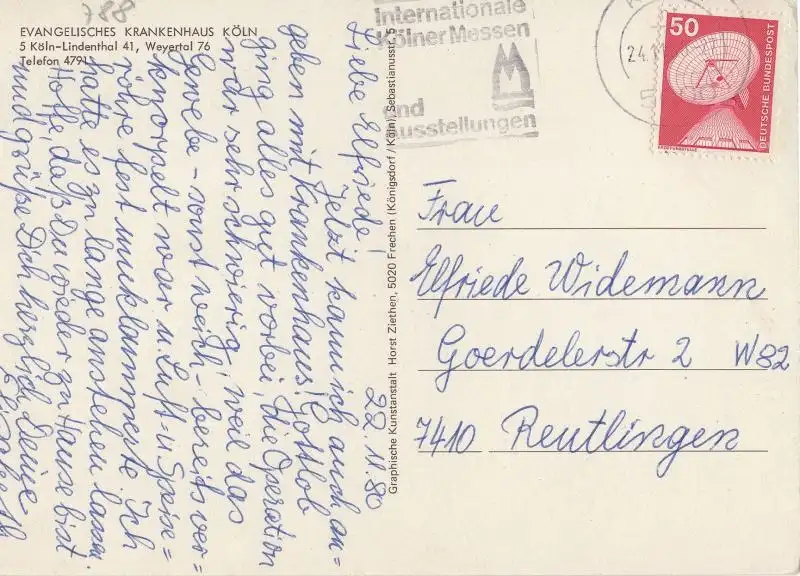 788
EVANGELISCHES KRANKENHAUS KÖLN
5 Köln-Lindenthal 41, Weyertal 76
Telefon 4791
22.11.80
Liebe Elfriede!
Jetzt kann ich auch an=
geben mit Krankenhaus! Gottlob
ging alles gut vorbei, die Operation
war sehr schwierig, weil das
Gewebe - sonst weich - bereits ver=
knorpelt war u. Luft- u. Speise=
röhre fest umklammerte. Ich
hatte es zu lange anstehen lassen.
Hoffe, daß Du wieder zu Hause bist
und grüße Dich herzlich Deine
Graphische Kunstanstalt Horst Ziethen, 5020 Frechen (Königsdorf / Köln), Sebastianusstr. 5
Internationale
Kölner Messen
und
Ausstellungen
24.11
50
DEUTSCHE BUNDESPOST
ERDFUNKSTELLE
Frau
Elfriede Widemann
Goerdelerstr 2 W82
7410 Reutlingen